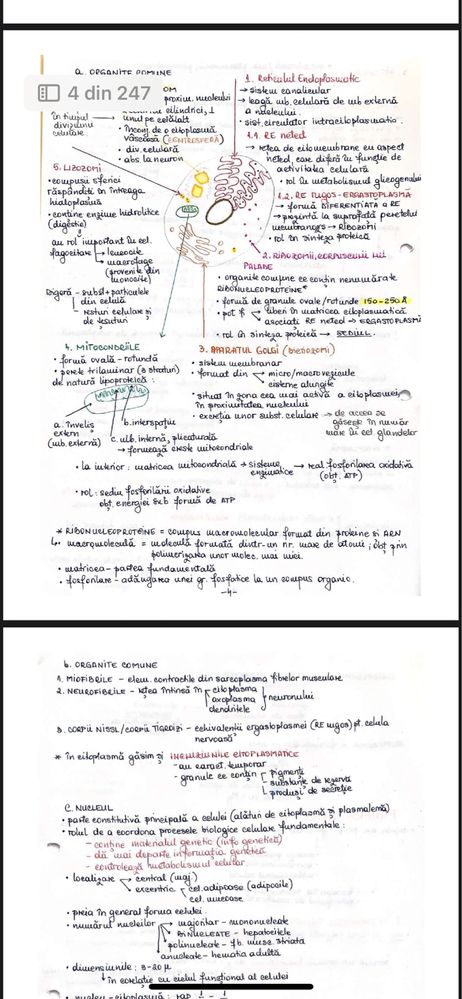 a. ORGANITE COMUNE
4 din 247
OM
proxim. nucleului
cilindrici, ⊥
unul pe celălalt
în timpul
diviziunii
celulare
înconj. de o citoplasmă
vâscoasă (CENTROSFERĂ)
• div. celulară
• abs. la neuron
1. Reticulul Endoplasmatic
→ sistem canalicular
→ leagă mb. celulară de mb externă
a nucleului.
• sist. circulator intracitoplasmatic.
1.1. RE neted
→ rețea de citomembrane cu aspect
neted, care diferă în funcție de
activitatea celulară
• rol în metabolismul glicogenului
1.2. RE RUGOS - ERGASTOPLASMĂ
→ formă DIFERENȚIATĂ a RE
→ prezintă la suprafața peretelui
membranos → RIBOZOMI
• rol în sinteza proteică
5. LIZOZOMI
• corpusculi sferici
răspândiți în întreaga
hialoplasmă
• conține enzime hidrolitice
(digestie)
au rol important în cel.
fagocitare → leucocite
→ macrofage
(provenite din
monocite)
Digeră - subst + particulele
din celulă
- resturi celulare și
de țesuturi
2. RIBOZOMII, CORPUSCULII LUI
PALADE
• organite comune ce conțin nenumărate
RIBONUCLEOPROTEINE*
• formă de granule ovale/rotunde 150-250 Å
• pot fi → liberi în matricea citoplasmatică
asociați RE neted → ERGASTOPLASMĂ
• rol în sinteza proteică → SEDIUL.
4. MITOCONDRIILE
• formă ovală - rotundă
• perete trilaminar (3 straturi)
de natură lipoproteică:
a. înveliș
extern
(mb. externă)
b. interspațiu
c. mb. internă, plicaturată
→ formează creste mitocondriale
3. APARATUL GOLGI (Dictiozomi)
• sistem membranar
• format din micro/macrovezicule
cisterne alungite
• situat în zona cea mai activă a citoplasmei,
în proximitatea nucleului
• excreția unor subst. celulare → de aceea se
găsește în număr
mare în cel. glandelor
• la interior: matricea mitocondrială → sisteme
enzimatice → real. fosforilarea oxidativă
(obț. ATP)
• rol: sediu fosforilării oxidative
obț. energiei sub formă de ATP
* RIBONUCLEOPROTEINE = compus macromolecular format din proteine și ARN
↳ macromoleculă = moleculă formată dintr-un nr. mare de atomi; obț. prin
polimerizarea unor molec. mai mici.
• matricea - partea fundamentală
• fosforilare - adăugarea unei gr. fosfatice la un compus organic.
-4-
b. ORGANITE COMUNE
1. MIOFIBRILE - elem. contractile din sarcoplasma fibrelor musculare
2. NEUROFIBRILE - rețea întinsă în citoplasma
axoplasma
dendritele
neuronului
3. CORPII NISSL/CORPII TIGROIZI - echivalenții ergastoplasmei (RE rugos) pt. celula
nervoasă
* în citoplasmă găsim și INCLUZIUNILE CITOPLASMATICE
- au caract. temporar
- granule ce conțin pigmenți
substanțe de rezervă
produși de secreție
C. NUCLEUL
• parte constitutivă principală a celulei (alături de citoplasmă și plasmalemă)
• rolul de a coordona procesele biologice celulare fundamentale:
- conține materialul genetic (info genetică)
- dă mai departe informația genetică
- controlează metabolismul celular
• localizare → central (maj.)
→ excentric cel. adipoase (adipocite)
cel. mucoase
• preia în general forma celulei
• numărul nucleilor → majoritar - mononucleate
BINUCLEATE - hepatocitele
polinucleate - fb. musc. striată
anucleate - hematia adultă
• dimensiunile: 3-20 μ
↳ în corelație cu ciclul funcțional al celulei